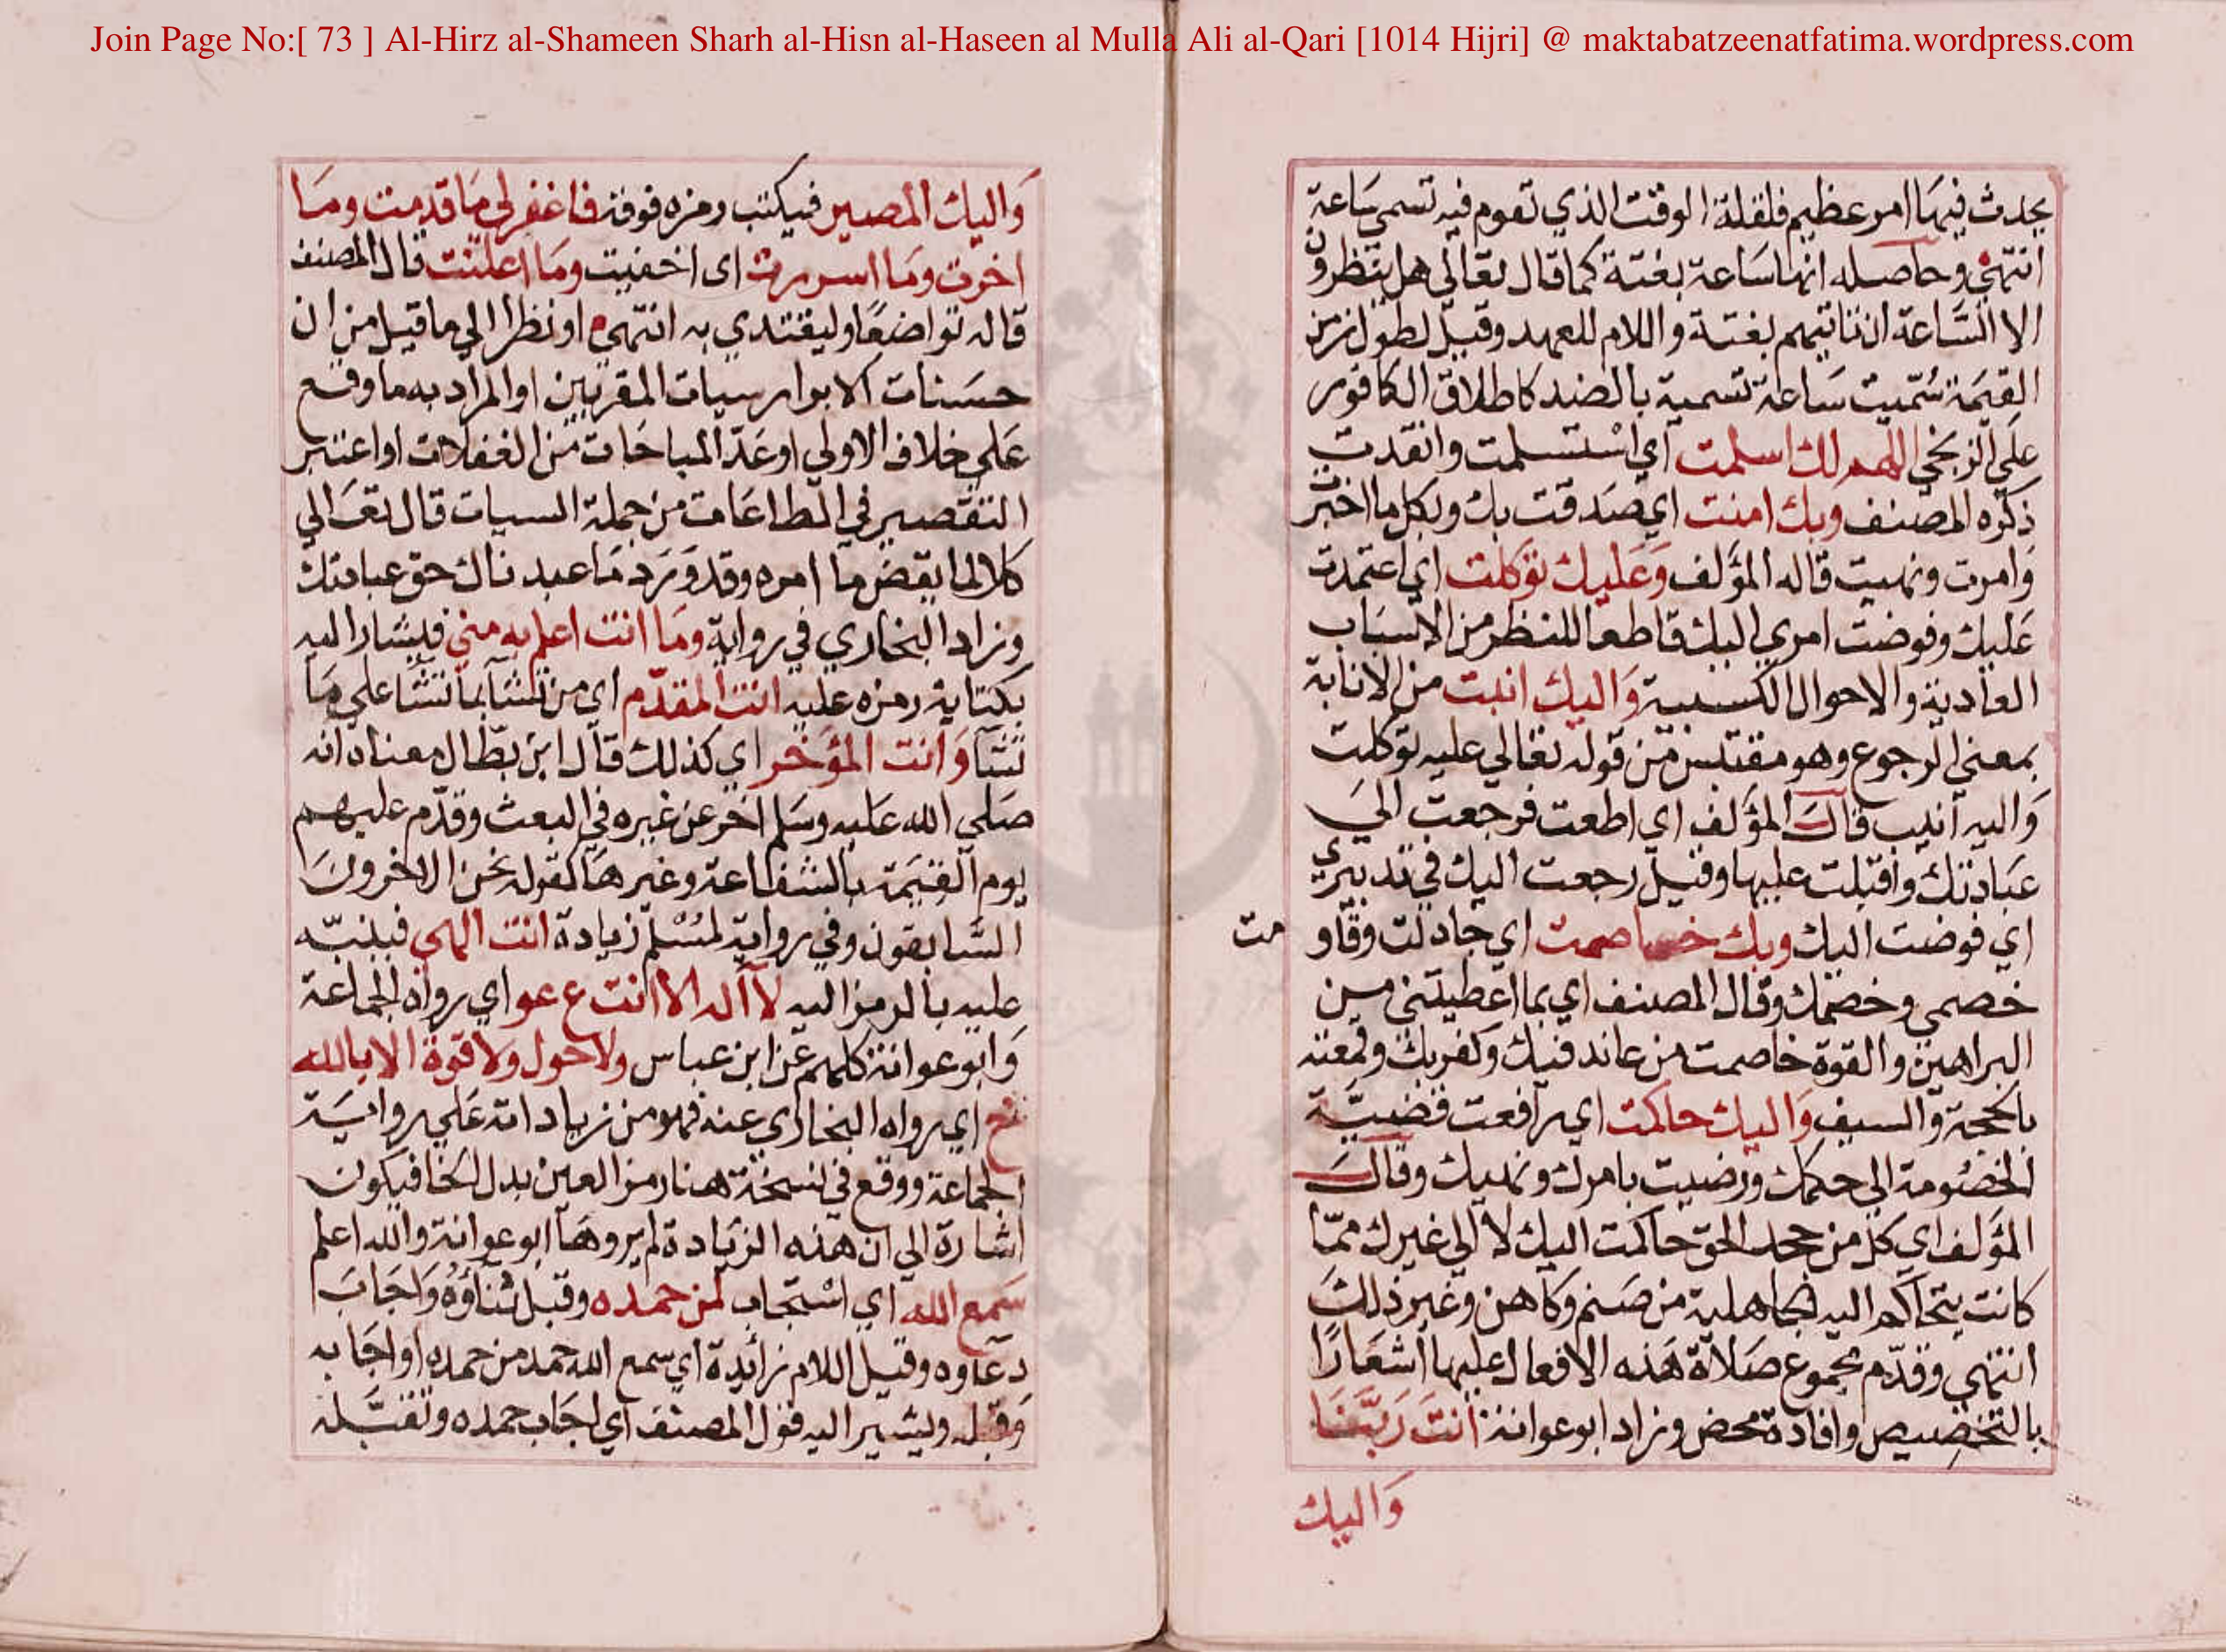 Join Page No:[ 73 ] Al-Hirz al-Shameen Sharh al-Hisn al-Haseen al Mulla Ali al-Qari [1014 Hijri] @ maktabatzeenatfatima.wordpress.com
يحدث فيها امر عظيم فلقلة الوقت الذي تقوم فيه تسمى ساعة
انتهى وحاصله انها ساعة بغتة كما قال تعالي هل ينظرون
الا الساعة ان تاتيهم بغتة واللام للعهد وقيل لطول زمن
القيمة سُمّيت ساعة تسمية بالضد كاطلاق الكافور
علي الزنجي اللهم لك اسلمت اي استسلمت وانقدت
ذكره المصنف وبك امنت اي صَدقت بك وبكل ما اخبرت
وامرت ونهيت قاله المؤلف وَعَليك توكلت اي اعتمدت
عليك وفوضت امري اليك قاطعا للنظر من الاسباب
العادية والاحوال الكسبية وَاليك انبت من الانابة
بمعني الرجوع وهو مقتبس من قوله تعالي عليه توكلت
وَاليه انيب قال المؤلف اي اطعت فرجعت الىَ
عبادتك واقبلت عليها وقيل رجعت اليك في تدبيري
اي فوضت اليك وبك خاصمت اي جادلت وقاو
مت
خصمي وخصمك وقال المصنف اي بما اعطيتني من
البراهين والقوة خاصمت من عاند فيك وكفر بك وقمعته
بالحجة والسيف وَاليك حاكمت اي رافعت قضيّة
الخصُومة الي حكمك ورضيت بامرك ونهيك وقالَ
المؤلف اي كل من جحد الحق حاكمت اليك لا الي غيرك ممّا
كانت يتحاكم اليه الجاهلية من صَنم وكاهن وغير ذلك
انتهي وقدّم مجموع صَلاة هَذه الافعال عليها اشعَارًا
بالتخصيص وافادة محض وزاد ابوعوانة انتَ رَبّنَا
وَاليك
وَاليك المصير فيكتب رمزه فوقه فاغفرلي مَا قدمت ومَا
اخرت ومَا اسررت اى اخفيت ومَا اعلنت قال المصنف
قاله تواضعًا وليقتدي به انتهي او نظرا الي ما قيل من ان
حسَنات الابرار سيات المقربين او المراد به ما وقع
علي خلاف الاولي او عَدّ المباحَات من الغفلات او اعتبر
التقصير في الطاعَات من جملة السيات قال تعَالي
كلا لما يقض ما امره وقد وَرَد مَا عبدناك حق عبادتك
وزاد البخاري في رواية ومَا انت اعلم به مني فيشار اليه
بكتابة رمزه عليه انت المقدّم اي من تشآ بما تشآ علي مَا
تشآ وَانت المؤخر اي كذلك قال ابن بطّال معناه انه
صَلي الله عَليه وسَلم اخر عن غيره في البعث وقدّم عليهم
يوم القيمَة بالشفاعة وغيرهَا كقوله نحن الاخرونَ
السّابقون وفي رواية لمسْلم زيادة انت الهي فينبّه
عليه بالرمز اليه لا اله الا انت ع عو اي رواه الجماعة
وَابوعوانة كلهم عَن ابن عباس ولا حول ولا قوة الا بالله
خ اي رواه البخاري عنه فهو من زياداته عَلي روايَة
الجماعة ووقع في نسخة هنا رمز العين بدل الخا فيكون
اشارة الي ان هذه الزيادة لم يروهَا ابوعوانة والله اعلم
سَمع الله اي اسْتجاب لمن حمده وقبل ثناؤهُ وَاجَابَ
دعَاوه وقيل اللام زائدة اي سمع الله حمد من حمده او اجَابه
وَقبله ويشير اليه قول المصنف اي اجَاب حمده وتقبّله